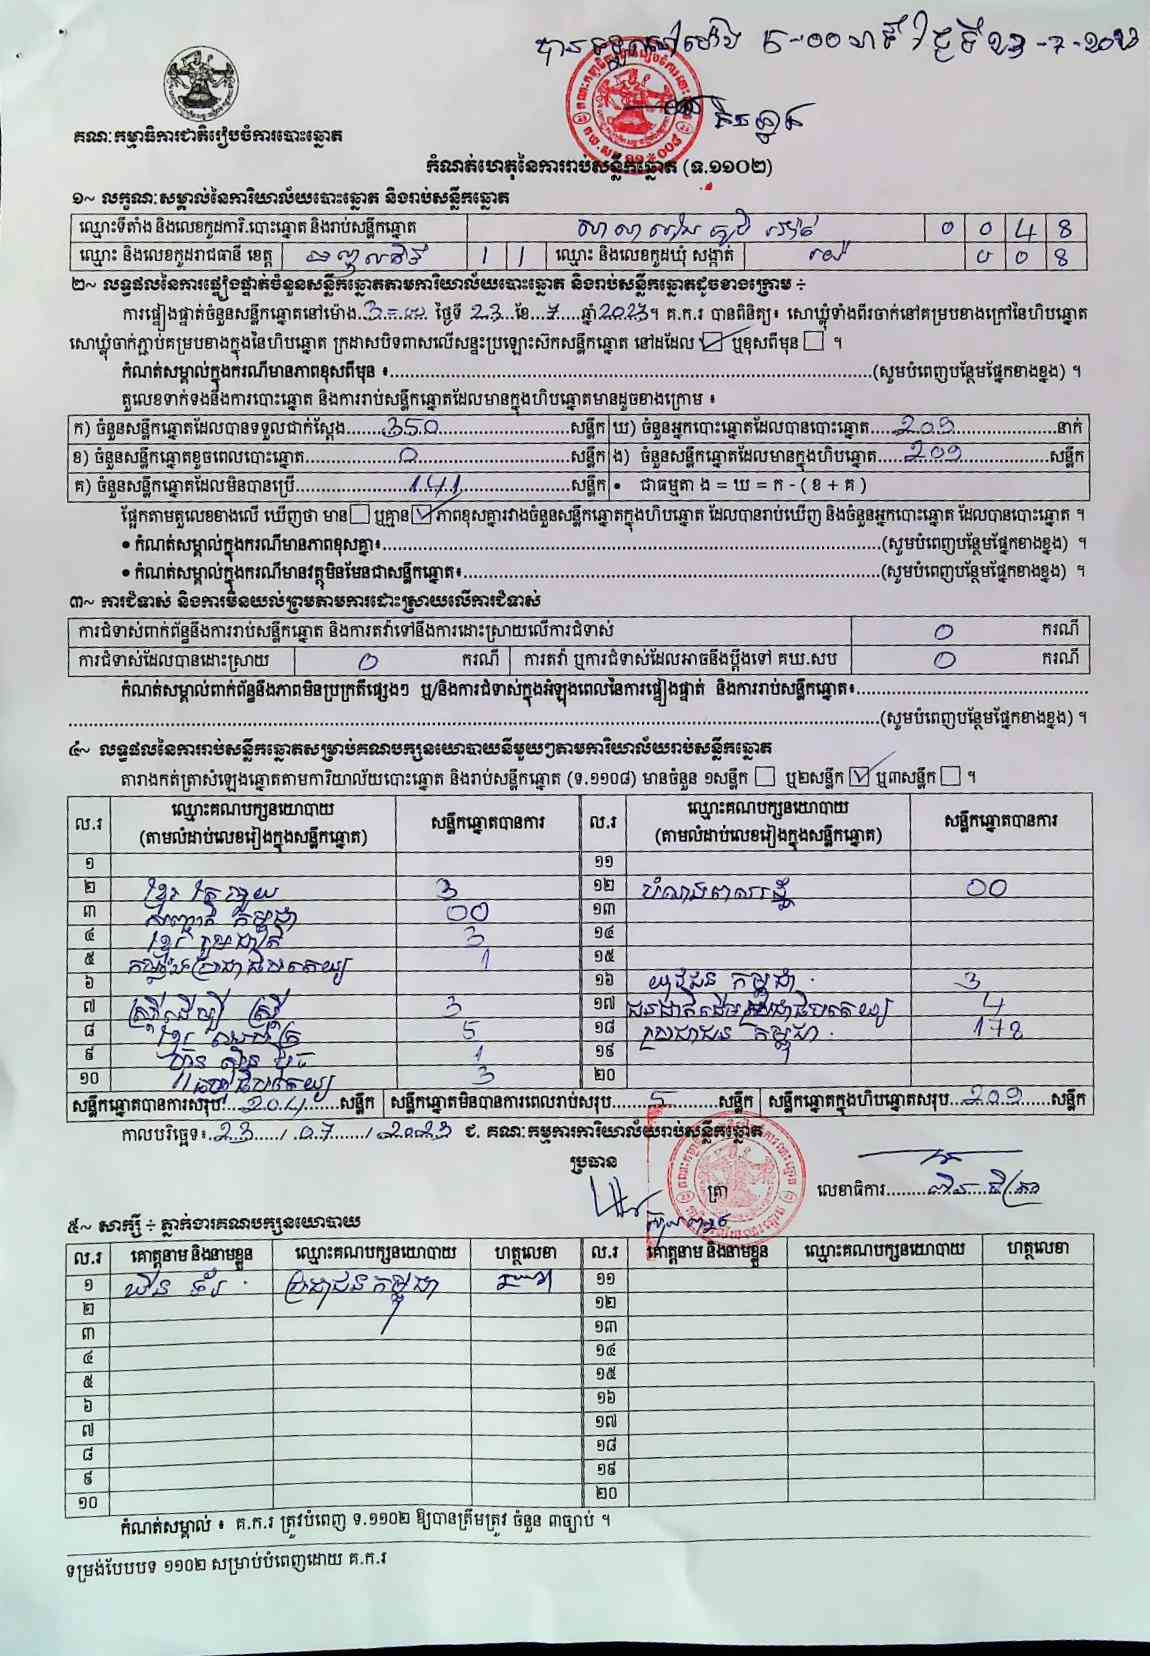 បានទទួលនៅម៉ោង ៦-00 នាទី ថ្ងៃទី 23-7-2023
គណៈកម្មាធិការជាតិរៀបចំការបោះឆ្នោត
កំណត់ហេតុនៃការរាប់សន្លឹកឆ្នោត (ទ.១១០២)
១~ លក្ខណៈសម្គាល់នៃការិយាល័យបោះឆ្នោត និងរាប់សន្លឹកឆ្នោត
ឈ្មោះទីតាំង និងលេខកូដការិ.បោះឆ្នោត និងរាប់សន្លឹកឆ្នោត 0 0 4 8
ឈ្មោះ និងលេខកូដរាជធានី ខេត្ត មណ្ឌលគិរី 1 1 ឈ្មោះ និងលេខកូដឃុំ សង្កាត់ 0 0 8
២~ លទ្ធផលនៃការផ្ទៀងផ្ទាត់ចំនួនសន្លឹកឆ្នោតតាមការិយាល័យបោះឆ្នោត និងរាប់សន្លឹកឆ្នោតដូចខាងក្រោម ÷
ការផ្ទៀងផ្ទាត់ចំនួនសន្លឹកឆ្នោតនៅម៉ោង 3-00 ថ្ងៃទី 23 ខែ 7 ឆ្នាំ 2023។ គ.ក.រ បានពិនិត្យ៖ សោឃ្លុំទាំងពីរចាក់នៅគម្របខាងក្រៅនៃហិបឆ្នោត
សោឃ្លុំចាក់ភ្ជាប់គម្របខាងក្នុងនៃហិបឆ្នោត ក្រដាសបិទពាសលើសន្ទះប្រឡោះស៊កសន្លឹកឆ្នោត នៅដដែល ☑ ឬខុសពីមុន ☐ ។
កំណត់សម្គាល់ក្នុងករណីមានភាពខុសពីមុន ៖ (សូមបំពេញបន្ថែមផ្នែកខាងខ្នង) ។
តួលេខទាក់ទងនឹងការបោះឆ្នោត និងការរាប់សន្លឹកឆ្នោតដែលមានក្នុងហិបឆ្នោតមានដូចខាងក្រោម ៖
ក) ចំនួនសន្លឹកឆ្នោតដែលបានទទួលជាក់ស្តែង 350 សន្លឹក ឃ) ចំនួនអ្នកបោះឆ្នោតដែលបានបោះឆ្នោត 209 នាក់
ខ) ចំនួនសន្លឹកឆ្នោតខូចពេលបោះឆ្នោត 0 សន្លឹក ង) ចំនួនសន្លឹកឆ្នោតដែលមានក្នុងហិបឆ្នោត 209 សន្លឹក
គ) ចំនួនសន្លឹកឆ្នោតដែលមិនបានប្រើ 141 សន្លឹក • ជាធម្មតា ង = ឃ = ក - ( ខ + គ )
ផ្អែកតាមតួលេខខាងលើ ឃើញថា មាន ☐ ឬគ្មាន ☑ ភាពខុសគ្នារវាងចំនួនសន្លឹកឆ្នោតក្នុងហិបឆ្នោត ដែលបានរាប់ឃើញ និងចំនួនអ្នកបោះឆ្នោត ដែលបានបោះឆ្នោត ។
• កំណត់សម្គាល់ក្នុងករណីមានភាពខុសគ្នា៖ (សូមបំពេញបន្ថែមផ្នែកខាងខ្នង) ។
• កំណត់សម្គាល់ក្នុងករណីមានវត្ថុមិនមែនជាសន្លឹកឆ្នោត៖ (សូមបំពេញបន្ថែមផ្នែកខាងខ្នង) ។
៣~ ការជំទាស់ និងការមិនយល់ព្រមតាមការដោះស្រាយលើការជំទាស់
ការជំទាស់ពាក់ព័ន្ធនឹងការរាប់សន្លឹកឆ្នោត និងការតវ៉ាទៅនឹងការដោះស្រាយលើការជំទាស់ 0 ករណី
ការជំទាស់ដែលបានដោះស្រាយ 0 ករណី ការតវ៉ា ឬការជំទាស់ដែលអាចនឹងប្តឹងទៅ គឃ.សប 0 ករណី
កំណត់សម្គាល់ពាក់ព័ន្ធនឹងភាពមិនប្រក្រតីផ្សេងៗ ឬ/និងការជំទាស់ក្នុងអំឡុងពេលនៃការផ្ទៀងផ្ទាត់ និងការរាប់សន្លឹកឆ្នោត៖
(សូមបំពេញបន្ថែមផ្នែកខាងខ្នង) ។
៤~ លទ្ធផលនៃការរាប់សន្លឹកឆ្នោតសម្រាប់គណបក្សនយោបាយនីមួយៗតាមការិយាល័យរាប់សន្លឹកឆ្នោត
តារាងកត់ត្រាសំឡេងឆ្នោតតាមការិយាល័យបោះឆ្នោត និងរាប់សន្លឹកឆ្នោត (ទ.១១០៨) មានចំនួន ១សន្លឹក ☐ ឬ២សន្លឹក ☑ ឬ៣សន្លឹក ☐ ។
ល.រ ឈ្មោះគណបក្សនយោបាយ (តាមលំដាប់លេខរៀងក្នុងសន្លឹកឆ្នោត) សន្លឹកឆ្នោតបានការ ល.រ ឈ្មោះគណបក្សនយោបាយ (តាមលំដាប់លេខរៀងក្នុងសន្លឹកឆ្នោត) សន្លឹកឆ្នោតបានការ
១ ១១
២ ខ្មែរតែមួយ 3 ១២ 00
៣ សញ្ជាតិកម្ពុជា 00 ១៣
៤ ខ្មែររួបរួមជាតិ 3 ១៤
៥ 1 ១៥
៦ ១៦ យុវជនកម្ពុជា 3
៧ ស្ត្រីដើម្បីស្ត្រី 3 ១៧ ជនជាតិដើមប្រជាធិបតេយ្យ 4
៨ ខ្មែរអភិរក្ស 5 ១៨ ប្រជាជនកម្ពុជា 178
៩ 1 ១៩
១០ 3 ២០
សន្លឹកឆ្នោតបានការសរុប 204 សន្លឹក សន្លឹកឆ្នោតមិនបានការពេលរាប់សរុប 5 សន្លឹក សន្លឹកឆ្នោតក្នុងហិបឆ្នោតសរុប 209 សន្លឹក
កាលបរិច្ឆេទ៖ 23 / 07 / 2023 ជ. គណៈកម្មការការិយាល័យរាប់សន្លឹកឆ្នោត
ប្រធាន ត្រា លេខាធិការ
៥~ សាក្សី ÷ ភ្នាក់ងារគណបក្សនយោបាយ
ល.រ គោត្តនាម និងនាមខ្លួន ឈ្មោះគណបក្សនយោបាយ ហត្ថលេខា ល.រ គោត្តនាម និងនាមខ្លួន ឈ្មោះគណបក្សនយោបាយ ហត្ថលេខា
១ ប្រជាជនកម្ពុជា ១១
២ ១២
៣ ១៣
៤ ១៤
៥ ១៥
៦ ១៦
៧ ១៧
៨ ១៨
៩ ១៩
១០ ២០
កំណត់សម្គាល់ ៖ គ.ក.រ ត្រូវបំពេញ ទ.១១០២ ឱ្យបានត្រឹមត្រូវ ចំនួន ៣ច្បាប់ ។
ទម្រង់បែបបទ ១១០២ សម្រាប់បំពេញដោយ គ.ក.រ